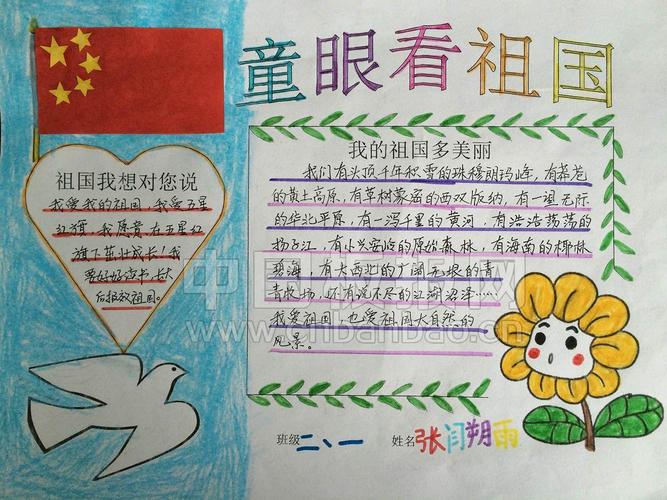 童眼看祖国
祖国我想对您说
我爱我的祖国,我爱五星
红旗,我愿意在五星红
旗下茁壮成长!我
要好好读书,长大
后报效祖国。
我的祖国多美丽
我们有头顶千年积雪的珠穆朗玛峰,有莽苍
的黄土高原,有草树蒙密的西双版纳,有一望无际
的华北平原,有一泻千里的黄河,有浩浩荡荡的
扬子江,有小兴安岭的原始森林,有海南的椰林
碧海,有大西北的广阔无垠的青
青牧场,还有说不尽的江湖沼泽……
我爱祖国,也爱祖国大自然的
风景。
班级 二、一 姓名 张闫朔雨
中国板报网
www.cnbanbao.cn